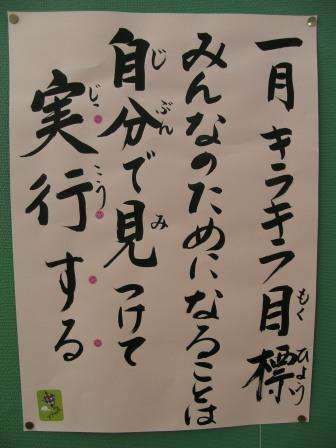 一月 キラキラ目標
もく ひょう
みんなのためになることは
自分で見つけて
じ ぶん み
実行する
じっ こう